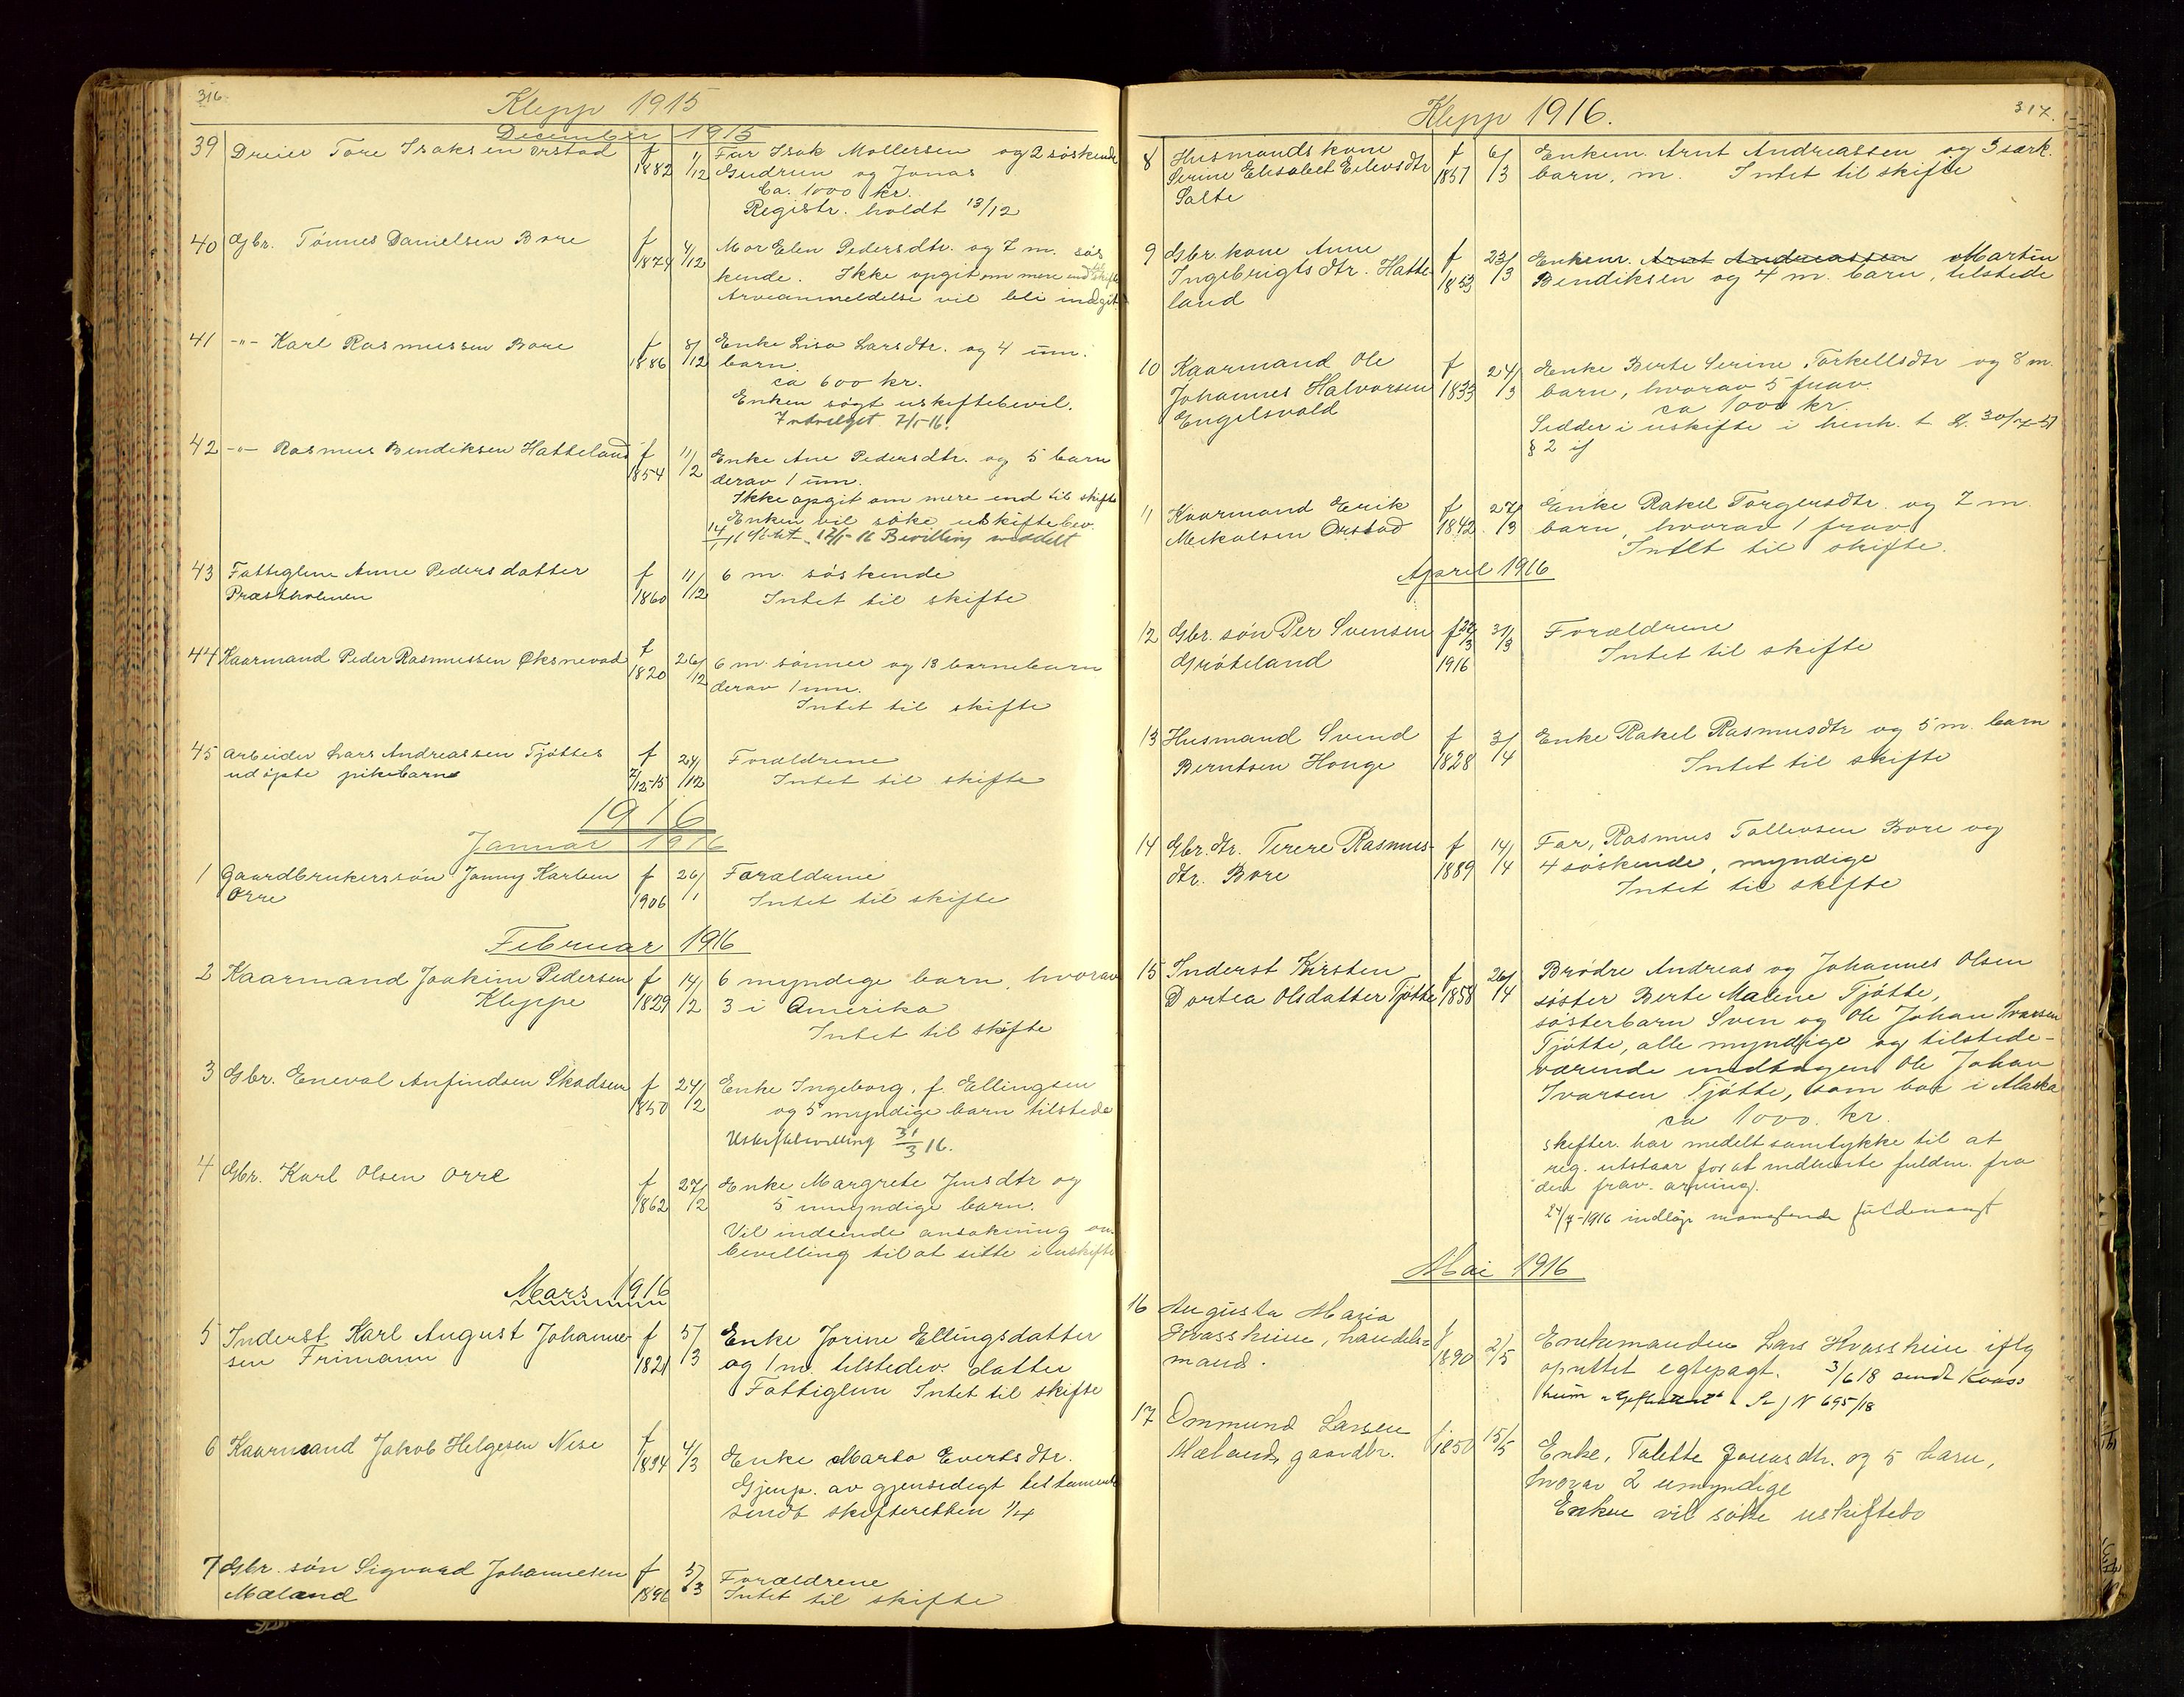 316
Klepp 1915
December 1915
39 Dreier Tore Isaksen Orstad f 1882 1/12 Far Isak Mollersen og 2 søskende
Gudrun og Jonas
Ca. 1000 kr.
Registr. holdt 13/12
40 Gbr. Tønnes Danielsen Bore f 1874 4/12 Mor Elen Pedersdtr. og 7 m. søs
kende. Ikke opgit om mere end til skifte
Arveanmeldelse vil bli indgit
41 -"- Karl Rasmussen Bore f 1886 8/12 Enke Lisa Larsdtr. og 4 um.
barn.
ca 600 kr.
Enken søgt uskiftebevil.
Indvilget 7/1-16.
42 -"- Rasmus Bendiksen Hatteland f 1854 11/12 Enke Ane Pedersdtr. og 5 barn
derav 1 um.
Ikke opgit om mere end til skifte
Enken vil søke uskiftebev.
12/1-16 Bevilling meddelt
43 Fattiglem Anne Pedersdatter f 1860 11/12 6 m. søskende
Præstholmen Intet til skifte
44 Kaarmand Peder Rasmussen Øksnevad f 1820 26/12 6 m. sønner og 13 barnebarn
derav 1 um.
Intet til skifte
45 Arbeider Lars Andreassen Tjøttes f 2/12-15 24/12 Forældrene
udøpte pikebarn Intet til skifte
1916
Januar 1916
1 Gaardbrukerssøn Jonny Karlsen f 1906 26/1 Forældrene
Orre Intet til skifte
Februar 1916
2 Kaarmand Joakim Pedersen f 1829 14/2 6 myndige barn, hvorav
Kleppe 3 i Amerika
Intet til skifte
3 Gbr. Eneval Anfindsen Skadsem f 1850 24/2 Enke Ingeborg, f. Ellingsen
og 5 myndige barn tilstede
Uskiftebevilling 31/3 16.
4 Gbr. Karl Olsen Orre f 1862 27/2 Enke Margrete Jensdtr og
5 umyndige barn.
Vil indsende ansøkning om
bevilling til at sitte i uskifte
Mars 1916
5 Inderst Karl August Johanne- f 1821 5/3 Enke Jorine Ellingsdatter
sen Frimann og 1 m. tilstedev. datter
Fattiglem Intet til skifte
6 Kaarmand Jakob Helgesen Nese f 1834 4/3 Enke Marta Evertsdtr.
Gjenp. av gjensidigt testamente
sendt skifteretten 1/4
7 Gbr. søn Sigvard Johannesen f 1896 5/3 Forældrene
Mæland Intet til skifte
317.
Klepp 1916.
8 Husmandskone f 1851 6/3 Enkem. Arnt Andreassen og 3 særk.
Serine Elisabet Eilevsdtr barn, m. Intet til skifte
Salte
9 Gbr. kone Anne f 1853 23/3 Enkem. Arnt Andreassen Martin
Ingebrigtsdtr. Hatte- Bendiksen og 4 m. barn, tilstede
land
10 Kaarmand Ole f 1833 24/3 Enke Berte Serine Torkellsdtr og 8 m.
Johannes Halvorsen barn, hvorav 5 frav.
Engelsvold ca 1000 kr.
Sidder i uskifte i henh. t. L. 30/7-51
§ 2 if
11 Kaarmand Erik f 1842 27/3 Enke Rakel Torgersdtr. og 7 m.
Meckalsen Orstad barn, hvorav 1 frav.
Intet til skifte.
April 1916
12 Gbr. søn Per Svensen f 22/3 1916 31/3 Forældrene
Grøteland Intet til skifte
13 Husmand Svend f 1828 3/4 Enke Rakel Rasmusdtr og 5 m. barn
Berntsen Hauge Intet til skifte
14 Gbr. dtr. Terere Rasmus- f 1889 14/4 Far, Rasmus Tollevsen Bore og
dtr. Bore 4 søskende, myndige
Intet til skifte
15 Inderst Kirsten f 1858 26/4 Brødre Andreas og Johannes Olsen
Dortea Olsdatter Tjøtte søster Berte Malene Tjøtte,
søsterbarn Sven og Ole Johan Ivarsen
Tjøtte, alle myndige og tilstede-
værende undtagen Ole Johan
Ivarsen Tjøtte, som bor i Alaska
ca 1000. kr.
skifter. har medelt samtykke til at
reg. utstaar for at indhente fuldm. fra
den frav. arving.
24/7-1916 indløp manglende fuldmagt
Mai 1916
16 Augusta Maria f 1890 2/5 Enkemanden Lars Kvassheim iflg
Kvassheim, handels- oprettet egtepagt. 3/6 18 sendt Kvass
mand. heim J N 695/18
17 Ommund Larsen f 1850 15/5 Enke, Talette Jonasdtr. og 5 barn,
Mæland, gaardbr. hvorav 2 umyndige
Enken vil søke uskiftebo